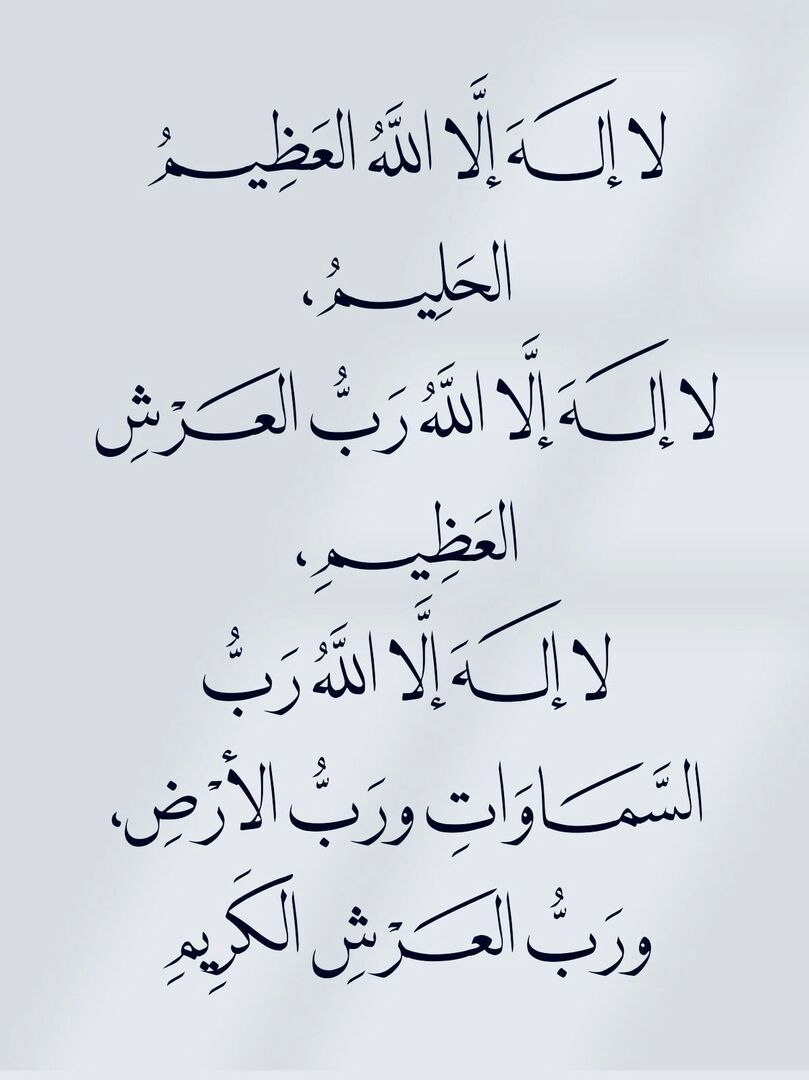 لا إلـهَ إلَّا اللَّهُ العَظِيـمُ
الحَلِيـمُ،
لا إلـهَ إلَّا اللَّهُ رَبُّ العَـرْشِ
العَظِيـمِ،
لا إلـهَ إلَّا اللَّهُ رَبُّ
السَّمـاوَاتِ ورَبُّ الأرْضِ،
ورَبُّ العَـرْشِ الكَرِيمِ